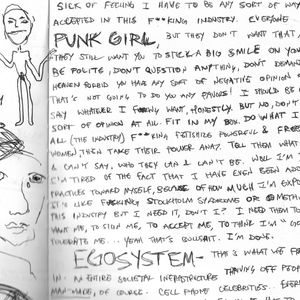 SICK OF FEELING I HAVE TO BE ANY SORT OF WAY
ACCEPTED IN THIS F**KING INDUSTRY. EVERYONE
PUNK GIRL, BUT THEY DON'T WANT THAT,
THEY STILL WANT YOU TO STICK A BIG SMILE ON YOU
BE POLITE, DON'T QUESTION ANYTHING, DON'T DEMAN
HEAVEN FORBID YOU HAVE ANY SORT OF NEGATIVE OPINION
THAT'S NOT GOING TO DO YOU ANY FAVORS! I SHOULD BE
SAY WHATEVER I WANT, HONESTLY. BUT NO, DON'T
SORT OF OPINION AT ALL. FIT IN MY BOX. DO WHAT I
ALL (THE INDUSTRY) F**KING FETISHIZE POWERFUL & FREE
WOMEN, THEN TAKE THEIR POWER AWAY. TELL THEM WHAT
& CAN'T SAY, WHO THEY CAN & CAN'T BE. WELL I'M
I'M TIRED OF THE FACT THAT I HAVE EVEN BEEN ADO
PRACTICES TOWARD MYSELF, BECAUSE OF HOW MUCH I'M EXP
IT'S LIKE FUCKING STOCKHOLM SYNDROME OR SOMETH
THIS INDUSTRY BUT I NEED IT, DON'T I? I NEED THEM TO
WANT ME, TO SIGN ME, TO ACCEPT ME, TO THINK I'M
TOLERATE ME... YEAH THAT'S BULLSHIT. I'M DONE.
EGOSYSTEM- THIS IS WHAT WE
IN- AN ENTIRE SOCIETAL INFRASTRUCTURE THRIVING OFF PEOP
MAN-MADE, OF COURSE. CELL PHONES CELEBRITIES..